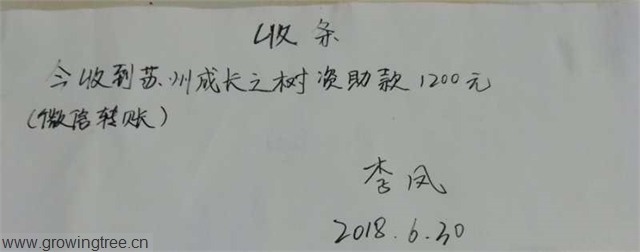 收条
今收到苏州成长之树资助款1200元
(微信转账)
李凤
2018.6.30
www.growingtree.cn